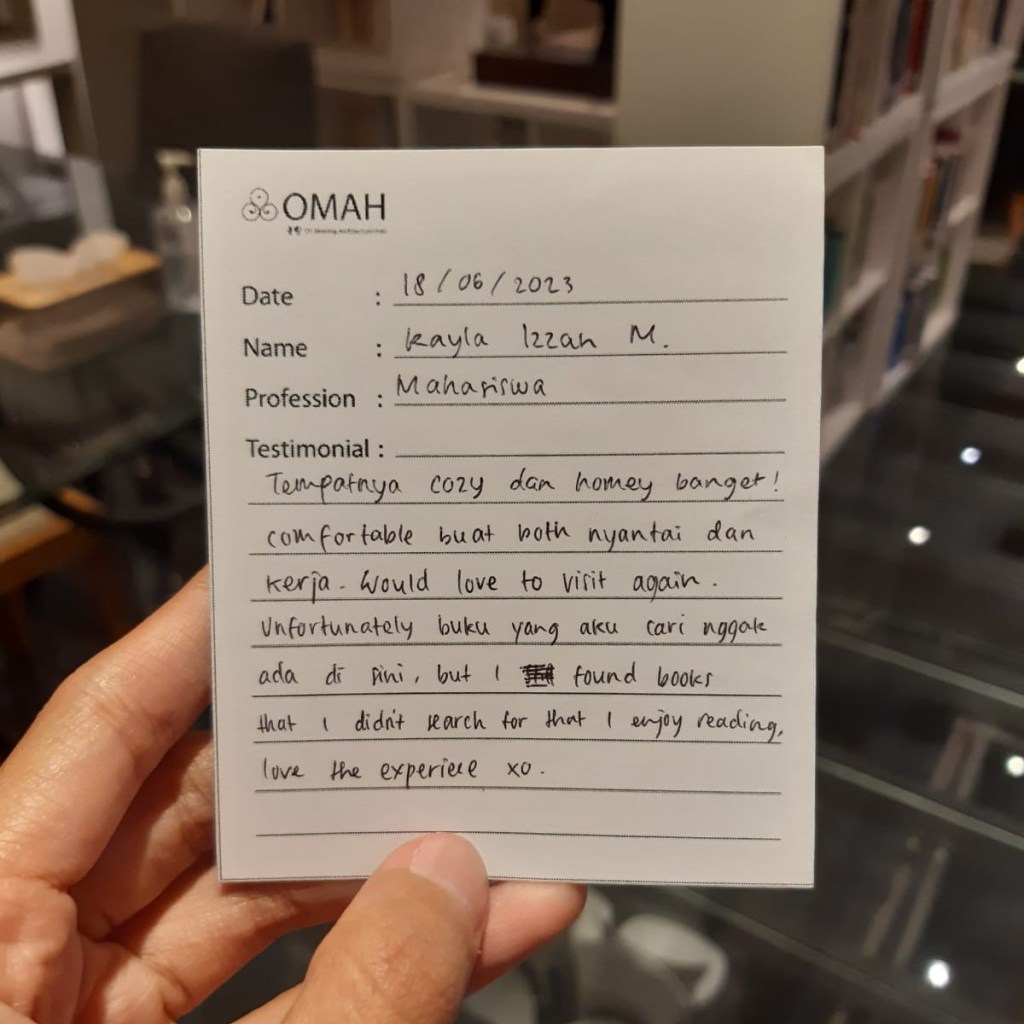 OMAH
Date : 18/06/2023
Name : Kayla Izzah M.
Profession : Mahasiswa
Testimonial :
Tempatnya cozy dan homey banget!
comfortable buat both nyantai dan
kerja. Would love to visit again.
Unfortunately buku yang aku cari nggak
ada di sini, but I found books
that I didn't search for that I enjoy reading,
love the experiece xo.